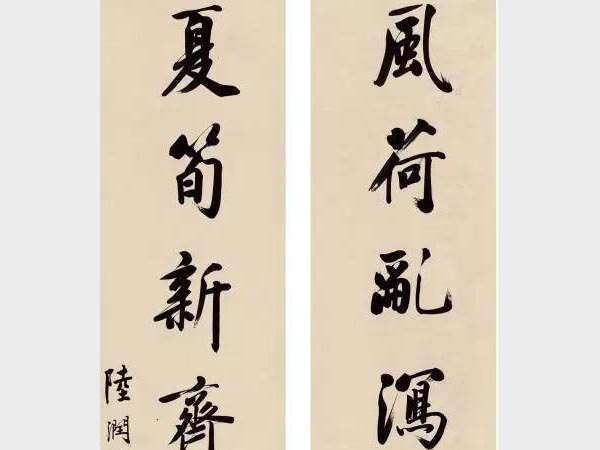 風荷亂瀉
夏筍新齊
陸潤